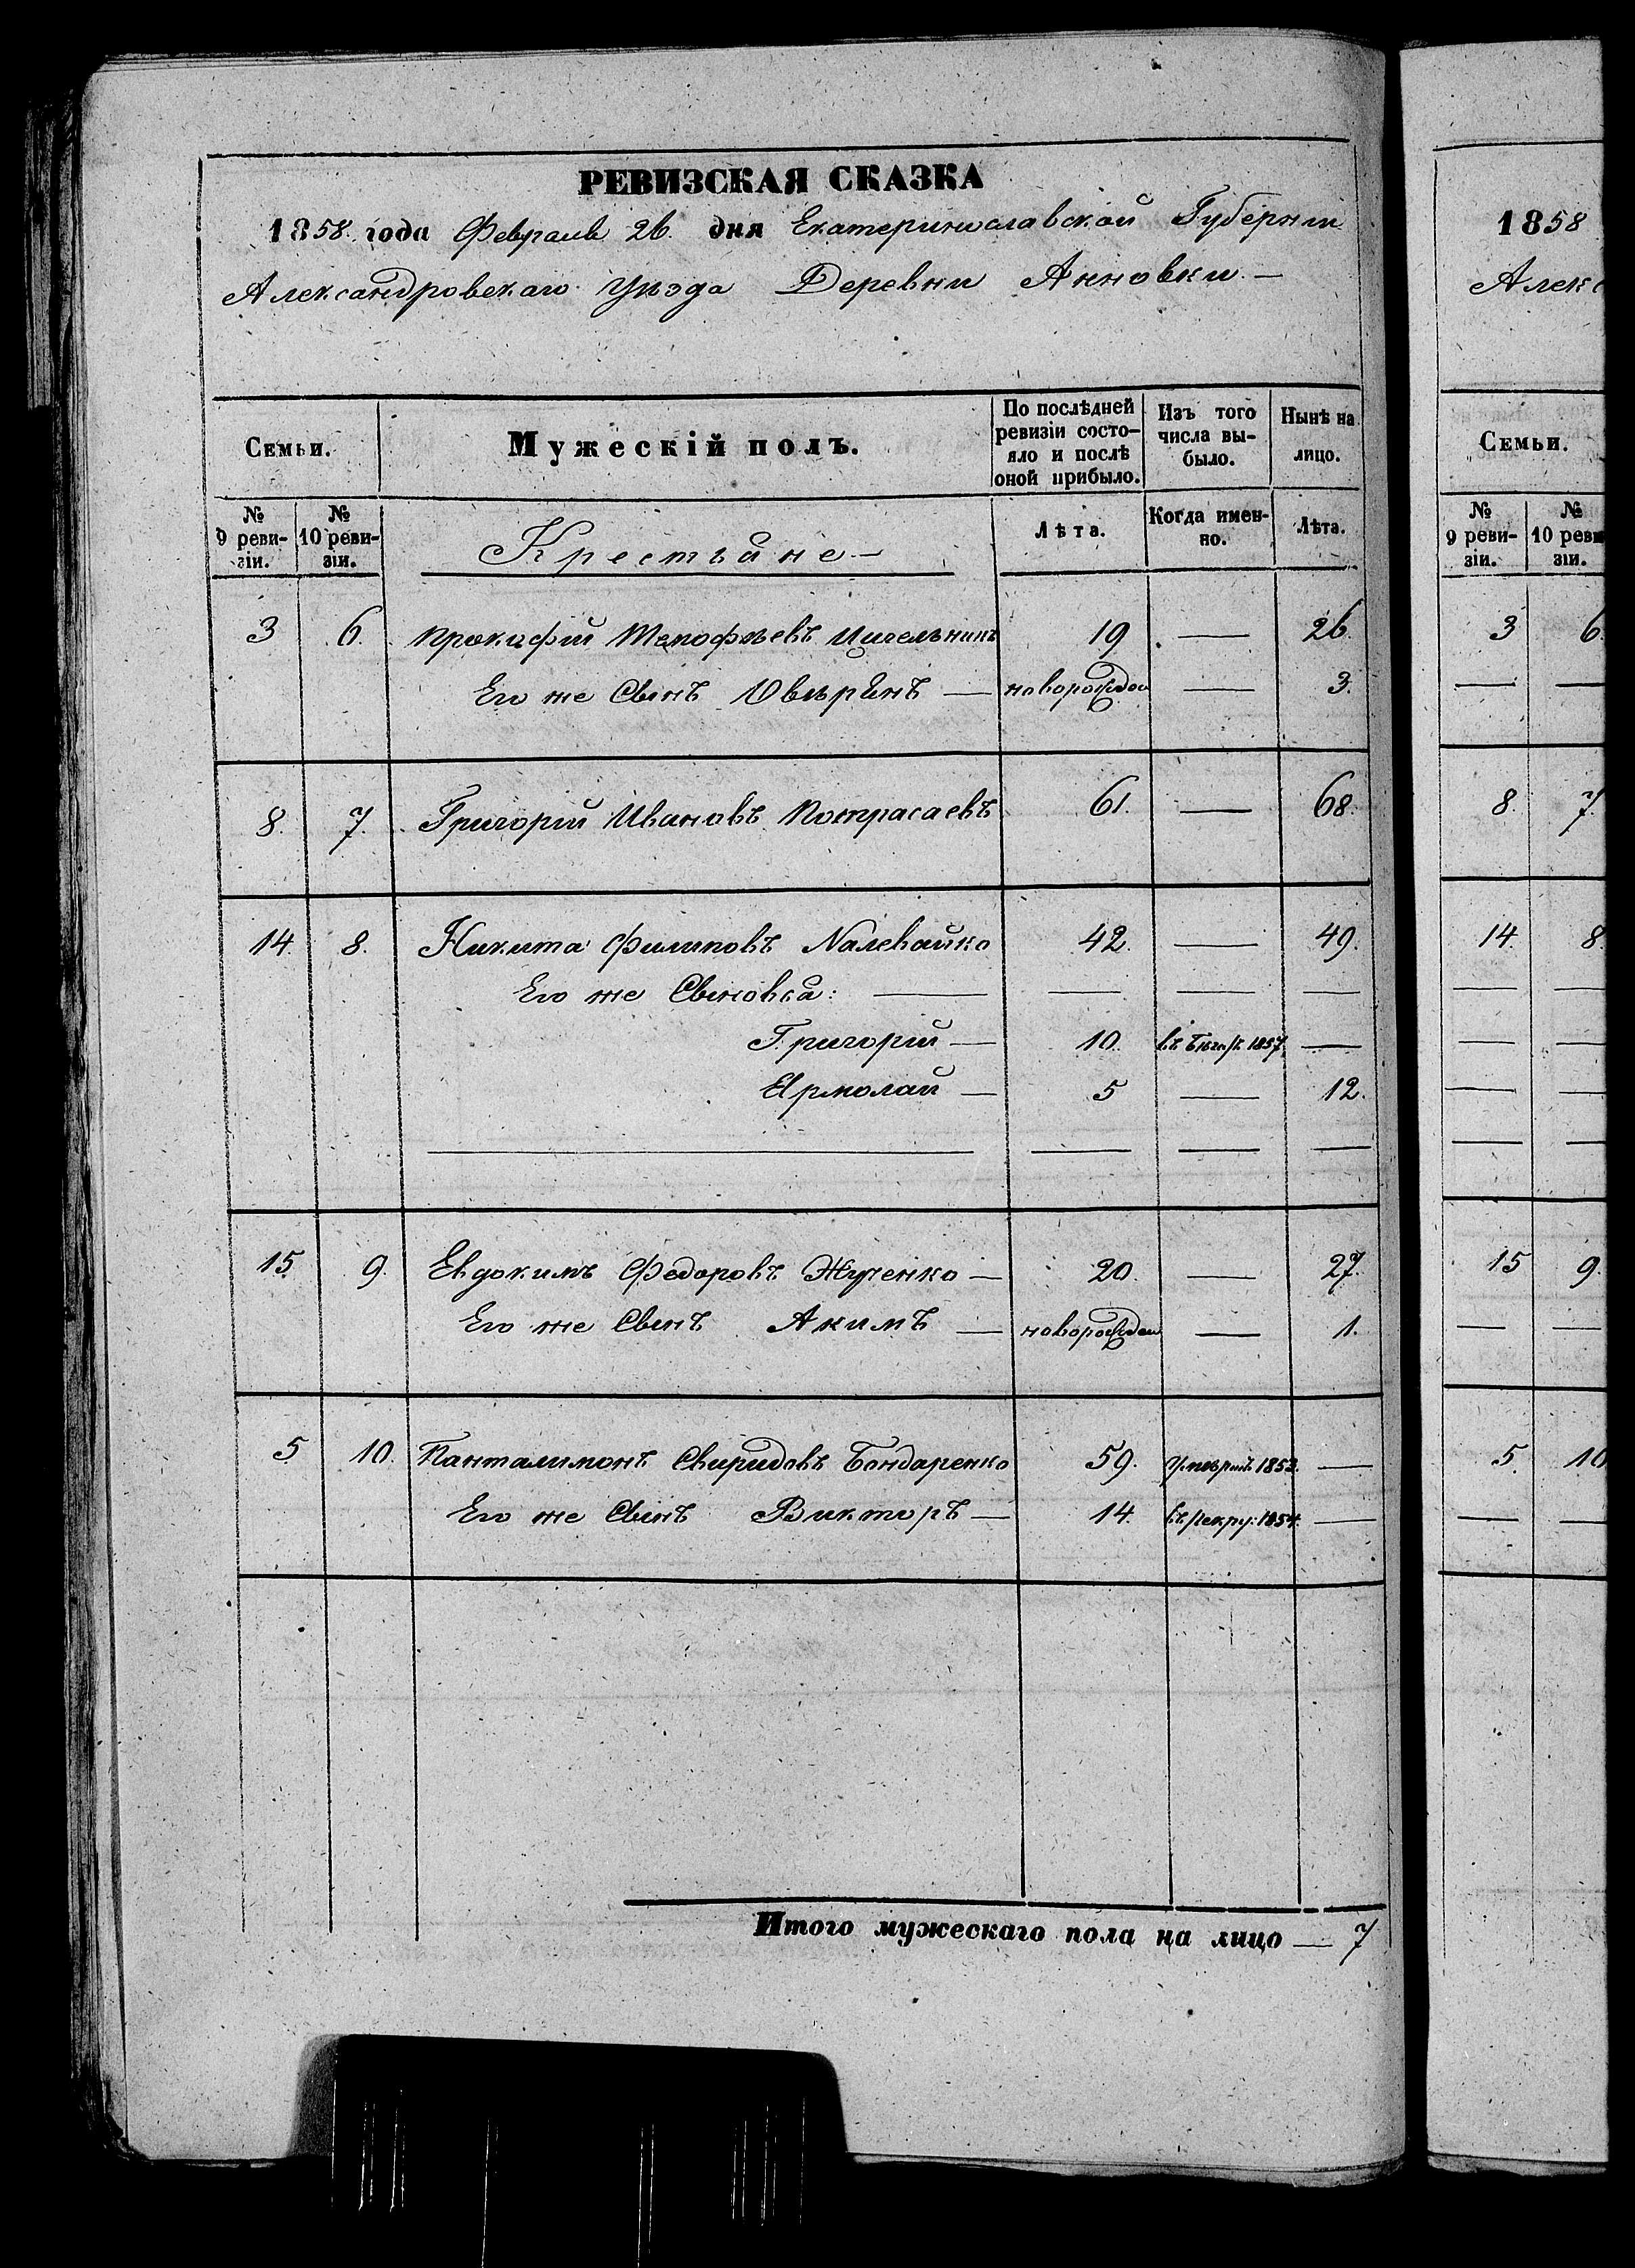 РЕВИЗСКАЯ СКАЗКА
1858 года Февраля 26 дня Екатеринославской Губерніи
Александровскаго Уѣзда Деревни Анновки
Семьи.
Мужескій полъ.
По послѣдней ревизіи состо-
яло и послѣ оной прибыло.
Изъ того числа вы-
было.
Нынѣ на лицо.
№ 9 реви-
зіи.
№ 10 реви-
зіи.
Крестьяне
Лѣта.
Когда имен-
но.
Лѣта.
3 6. Прокофій 19 — 26.
Его же Сынъ — новорожден — 3.
8. 7. Григорій Ивановъ 61. — 68.
14. 8. Никита Филиповъ Налевайко 42. — 49.
Его же Сыновья: — — — —
Григорій — 10. 1857 —
Ермолай — 5 — 12.
— — — —
15 9. Евдокимъ Федоровъ Жученко — 20. — 27.
Его же Сынъ Акимъ — новорожден — 1.
5 10. Панталимонъ Свиридовъ Бондаренко 59. умеръ 1853. —
Его же Сынъ Викторъ — 14. въ рекру: 1854. —
Итого мужескаго пола на лицо — 7
1858
Алекс
Семьи.
№ 9 реви-
зіи.
№ 10 реви
зіи.
3 6.
— —
8. 7.
14 8
— —
— —
— —
— —
15 9.
— —
5. 10
— —